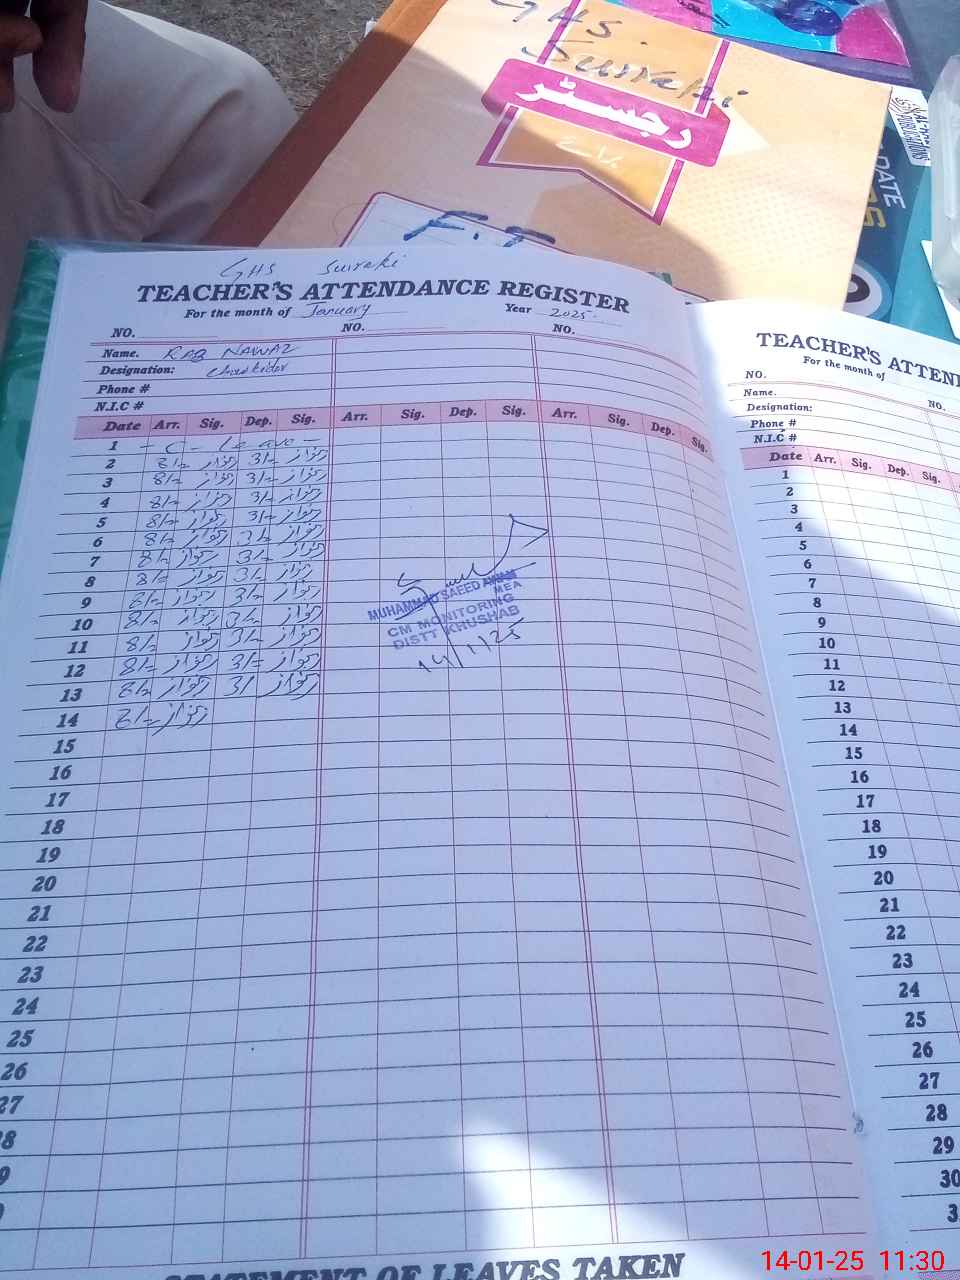 GHS.
Surraki
رجسٹر
برائے
PUBLICATIONS
DATE
GHS Surraki
TEACHER'S ATTENDANCE REGISTER
For the month of January Year 2025.
NO. NO. NO.
Name. RAB NAWAZ
Designation: Chowkidar
Phone #
N.I.C #
Date Arr. Sig. Dep. Sig. Arr. Sig. Dep. Sig. Arr. Sig. Dep. Sig.
1 - C - Leave -
2 8/= رنواز 3/= رنواز
3 8/= رنواز 3/= رنواز
4 8/= رنواز 3/= رنواز
5 8/= رنواز 3/= رنواز
6 8/= رنواز 3/= رنواز
7 8/= رنواز 3/= رنواز
8 8/= رنواز 3/= رنواز
9 8/= رنواز 3/= رنواز
10 8/= رنواز 3/= رنواز
11 8/= رنواز 3/= رنواز
12 8/= رنواز 3/= رنواز
13 8/= رنواز 3/ رنواز
14 8/= رنواز
MUHAMMAD SAEED AWAN
MEA
CM MONITORING
DISTT KHUSHAB
14/1/25
15
16
17
18
19
20
21
22
23
24
25
26
27
8
9
STATEMENT OF LEAVES TAKEN
TEACHER'S ATTEN
For the month of
NO. NO.
Name.
Designation:
Phone #
N.I.C #
Date Arr. Sig. Dep. Sig.
1
2
3
4
5
6
7
8
9
10
11
12
13
14
15
16
17
18
19
20
21
22
23
24
25
26
27
28
29
30
3
14-01-25 11:30